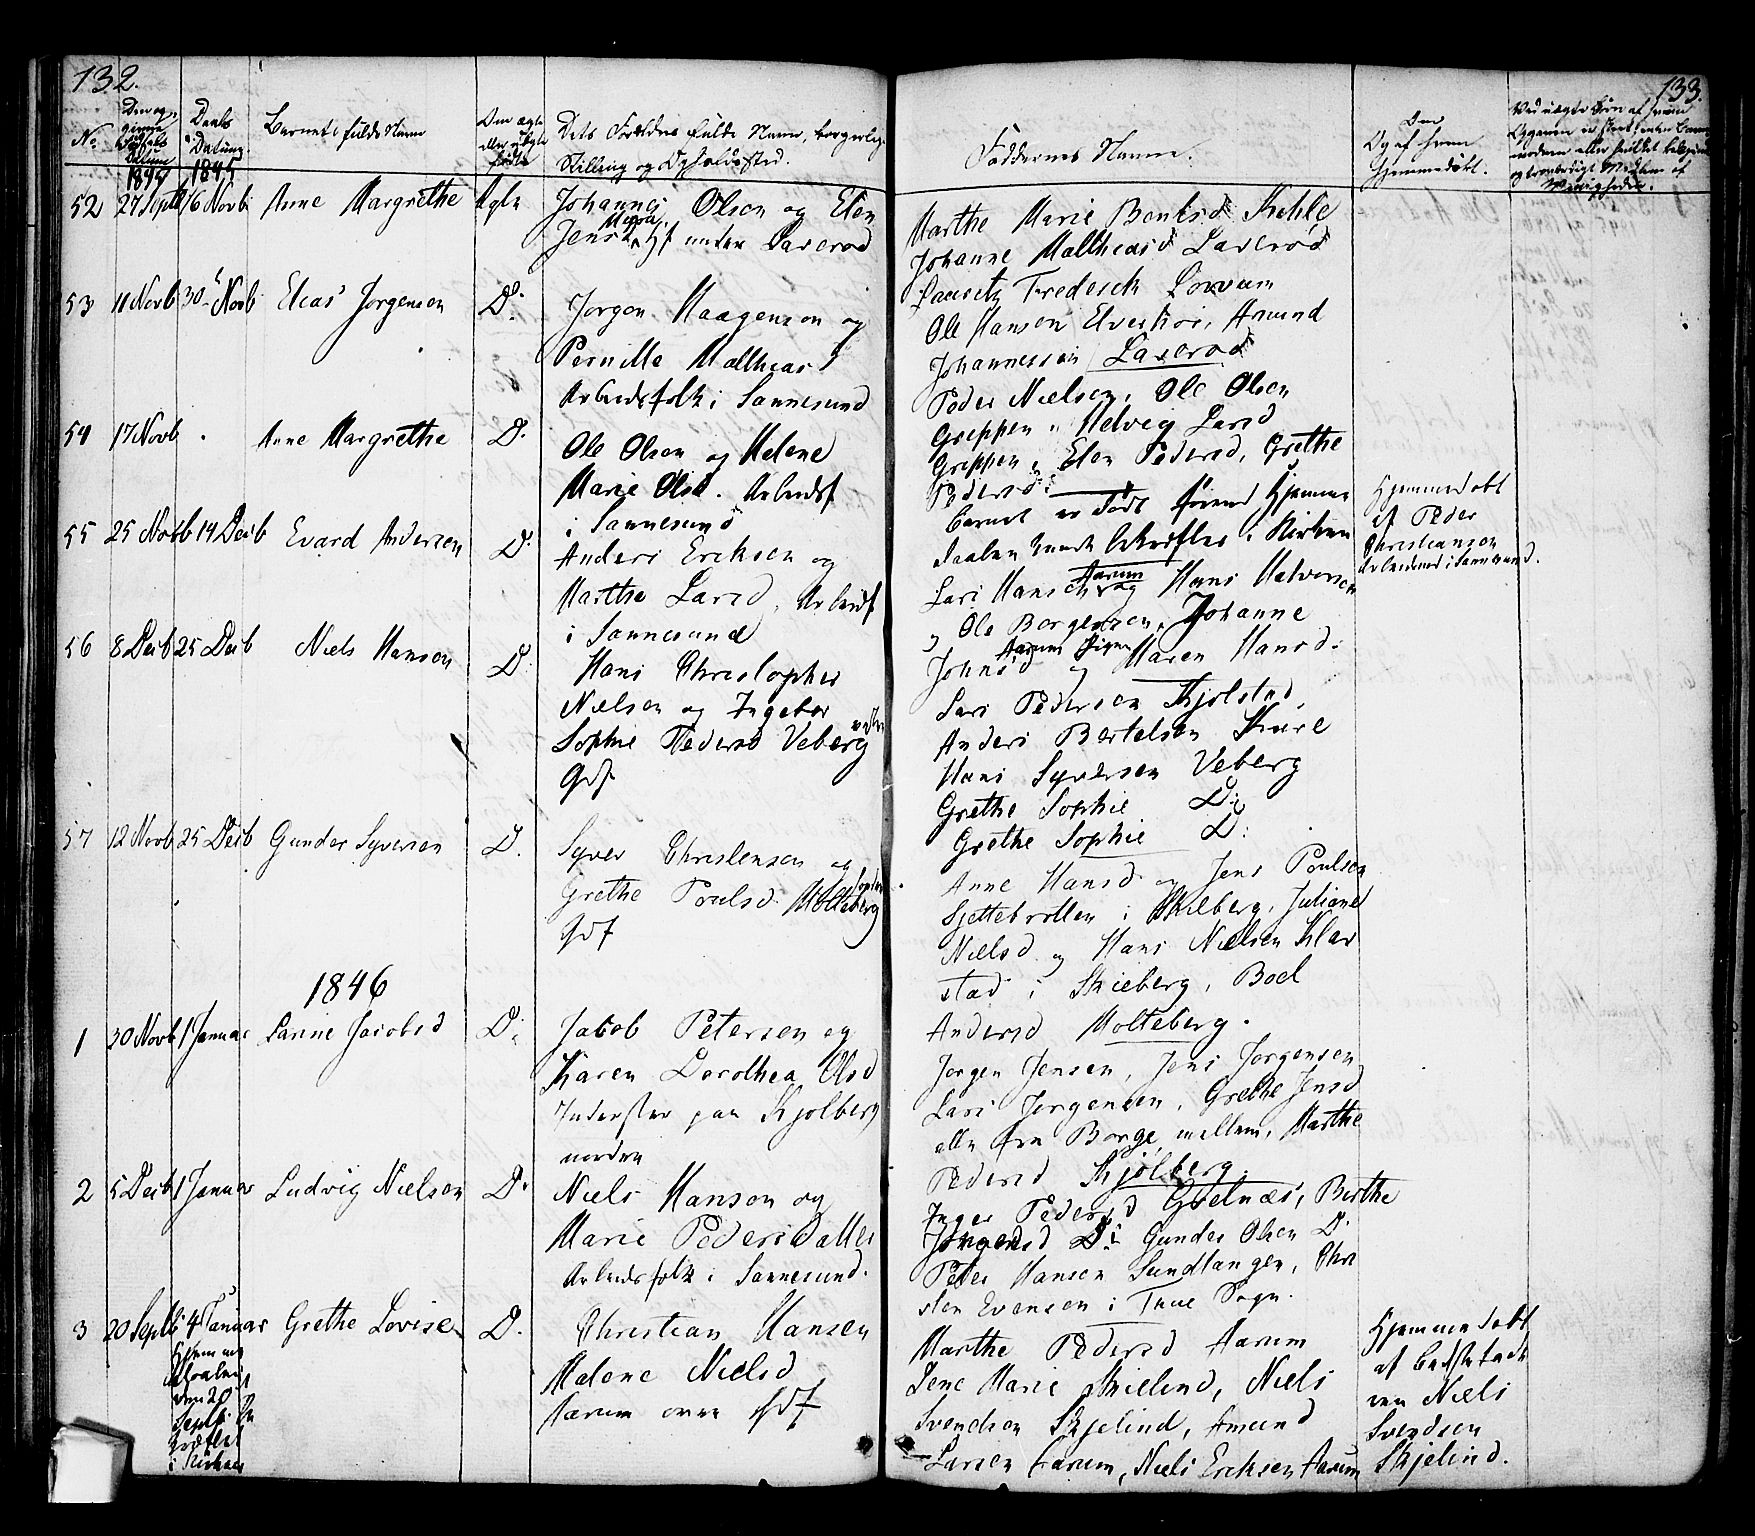 132.
No
Den op-
givne
Fødsels
Datum
1845
Daabs
Datum
1845
Barnets fulde Navn
Om ægte
eller uægte
født
Dets Forældres fulde Navne, borgerlig
Stilling og Opholdssted.
52 27 Septb 16 Novb Anne Margrethe Ægte
Johannes Olsen og Elen
Maria
Jensd. Hf nedre Laxerød
53 11 Novb 30 Novb Elias Jørgensen D:
Jørgen Haagensen og
Pernille Matthiasd
Arbeidsfolk i Sannesund
54 17 Novb Anne Margrethe D.
Ole Olsen og Helene
Marie Olsd. Arbeidsf
i Sannesund
55 25 Novb 14 Decb Evard Andersen D:
Anders Eriksen og
Marthe Larsd, Arbeidsf
i Sannesund
56 8 Decb 25 Decb Niels Hansen D:
Hans Christopher
Nielsen og Ingebor
Sophie Pedersd Veberg
Gdf
57 12 Novb 25 Decb Gunder Syversen D.
Syver Christensen og
Grethe Poulsd. Molteberg
Gdf
1846
1 30 Novb 1 Januar Larine Jacobsd D:
Jakob Petersen og
Karen Dorothea Olsd
Inderster paa Kjølberg
nordre
2 5 Decb 1 Januar Ludvig Nielsen D.
Niels Hansen og
Marie Pedersdatter
Arbeidsfolk i Sannesund.
3 20 Septb 4 Januar Grethe Lovise D.
Hjemme
den 20
Septb
i Kirken
Christian Hansen
Malene Nielsd
Aarum Gdf
133.
Faddernes Navne.
Om
og af hvem
hjemmedøbt.
Ved uægte Børn af hvem
Marthe Marie Bentsd Kehle
Johanne Matthiasd Laxerød
Lauritz Frederik Lorvum
Ole Hansen Elvestrøi, Amund
Johannessen Laxerød
Peder Nielsen, Ole Olsen
Greppen, Helvig Larsd
Greppen, Elen Pedersd, Grethe
Pedersd.
Barnet er død førend Hjemme
daaben kunde bekræftes i Kirken
Aarum
Lars Hansen og Hans Halversen
og Ole Borgersen, Johanne
Johnsd og Maren Hansd:
Lars Pedersen Kjølstad,
Anders Bertelsen Skare
Hans Syversen Veberg
Grethe Sophie D:
Grethe Sophie D:
Anne Hansd og Jens Poulsen
Sjettebrotten i Skieberg, Juliane
Nielsd og Hans Nielsen Klav
stad i Skieberg, Boel
Andersd Molteberg.
Jørgen Jensen, Jens Jørgensen
Lars Jørgensen, Grethe Jensd
alle fra Borge mellem, Marthe
Pedersd Kjølberg.
Inger Pedersd Goelnæs, Berthe
Jørgensd D: Gunder Olsen D.
Peter Hansen Sundlangen, Chri
sten Evensen i Tune Sogn.
Marthe Pedersd Aarum
Lene Marie Skielind, Niels
Svendsen Skjelind, Amund
Larsen Aarum, Niels Eriksen Aarum
Hjemmedøbt
af Peder
Christiansen
Arbeidsmd i Sannesund.
Hjemmedøbt
af Bedstefade
ren Niels
Svendsen
Skjelind.